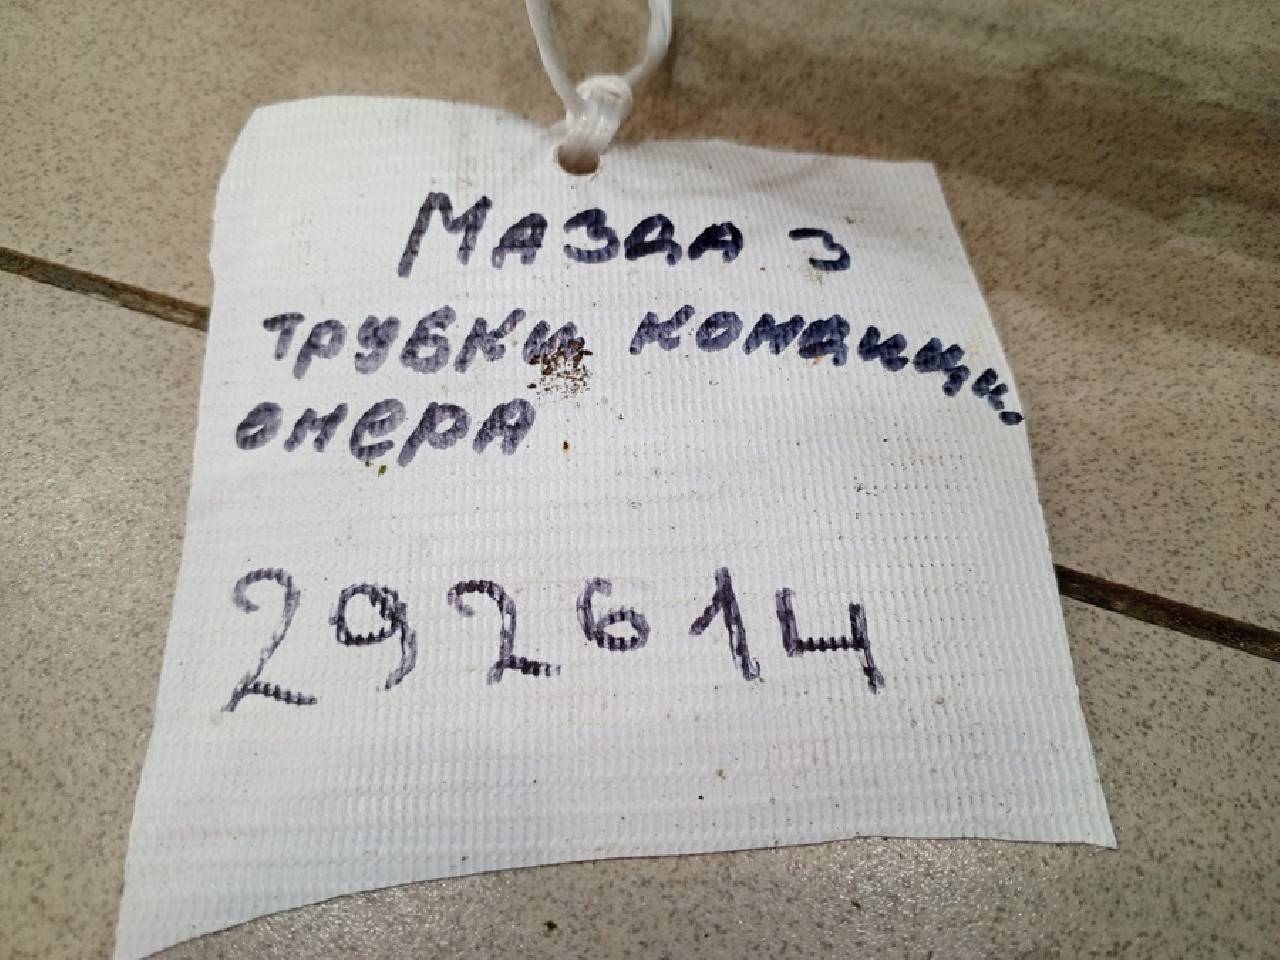 Мазда 3
трубки кондици.
онера
292614